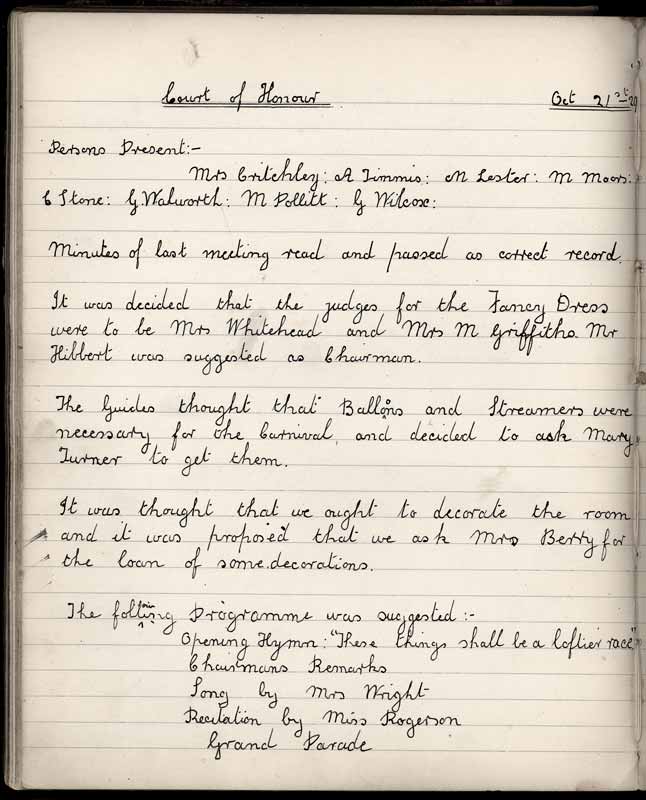 Court of Honour Oct 21st 29
Persons Present:-
Mrs Critchley: A Timmis: M Lester: M Moors:
C Stone: G. Walworth: M Pollitt: G Wilcox:
Minutes of last meeting read and passed as correct record.
It was decided that the judges for the Fancy Dress
were to be Mrs Whitehead and Mrs M Griffiths. Mr
Hibbert was suggested as Chairman.
The Guides thought that Balloons and Streamers were
necessary for the Carnival, and decided to ask Mary
Turner to get them.
It was thought that we ought to decorate the room
and it was proposed that we ask Mrs Berry for
the loan of some decorations.
The following Programme was suggested:-
Opening Hymn: "These things shall be a loftier race"
Chairmans Remarks
Song by Mrs Wright
Recitation by Miss Rogerson
Grand Parade